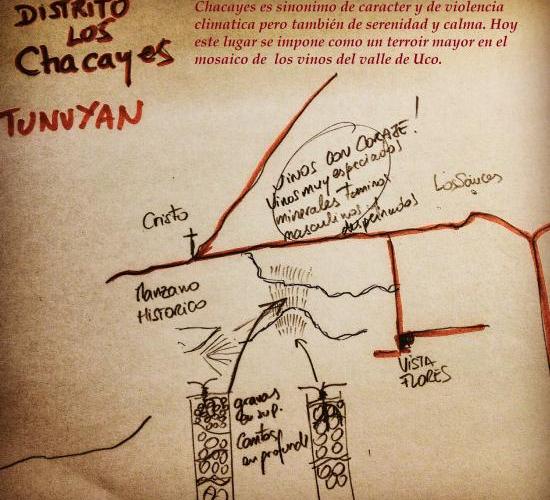 DISTRITO
LOS
Chacayes
TUNUYAN
Chacayes es sinonimo de caracter y de violencia
climatica pero también de serenidad y calma. Hoy
este lugar se impone como un terroir mayor en el
mosaico de los vinos del valle de Uco.
VINOS CON CORAJE!
Vinos muy especiados
minerales taninos
masculinos y
despeinados
Los Sauces
Cristo
Manzano
HISTORICO
VISTA
FLORES
gravas
en sup.
Cantos
en profund